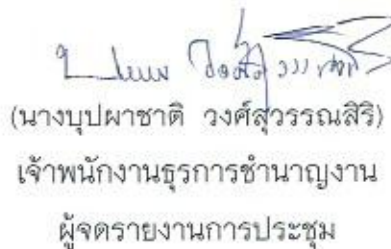 (นางบุปผาชาติ วงศ์สุวรรณสิริ)
เจ้าพนักงานธุรการชำนาญงาน
ผู้จดรายงานการประชุม